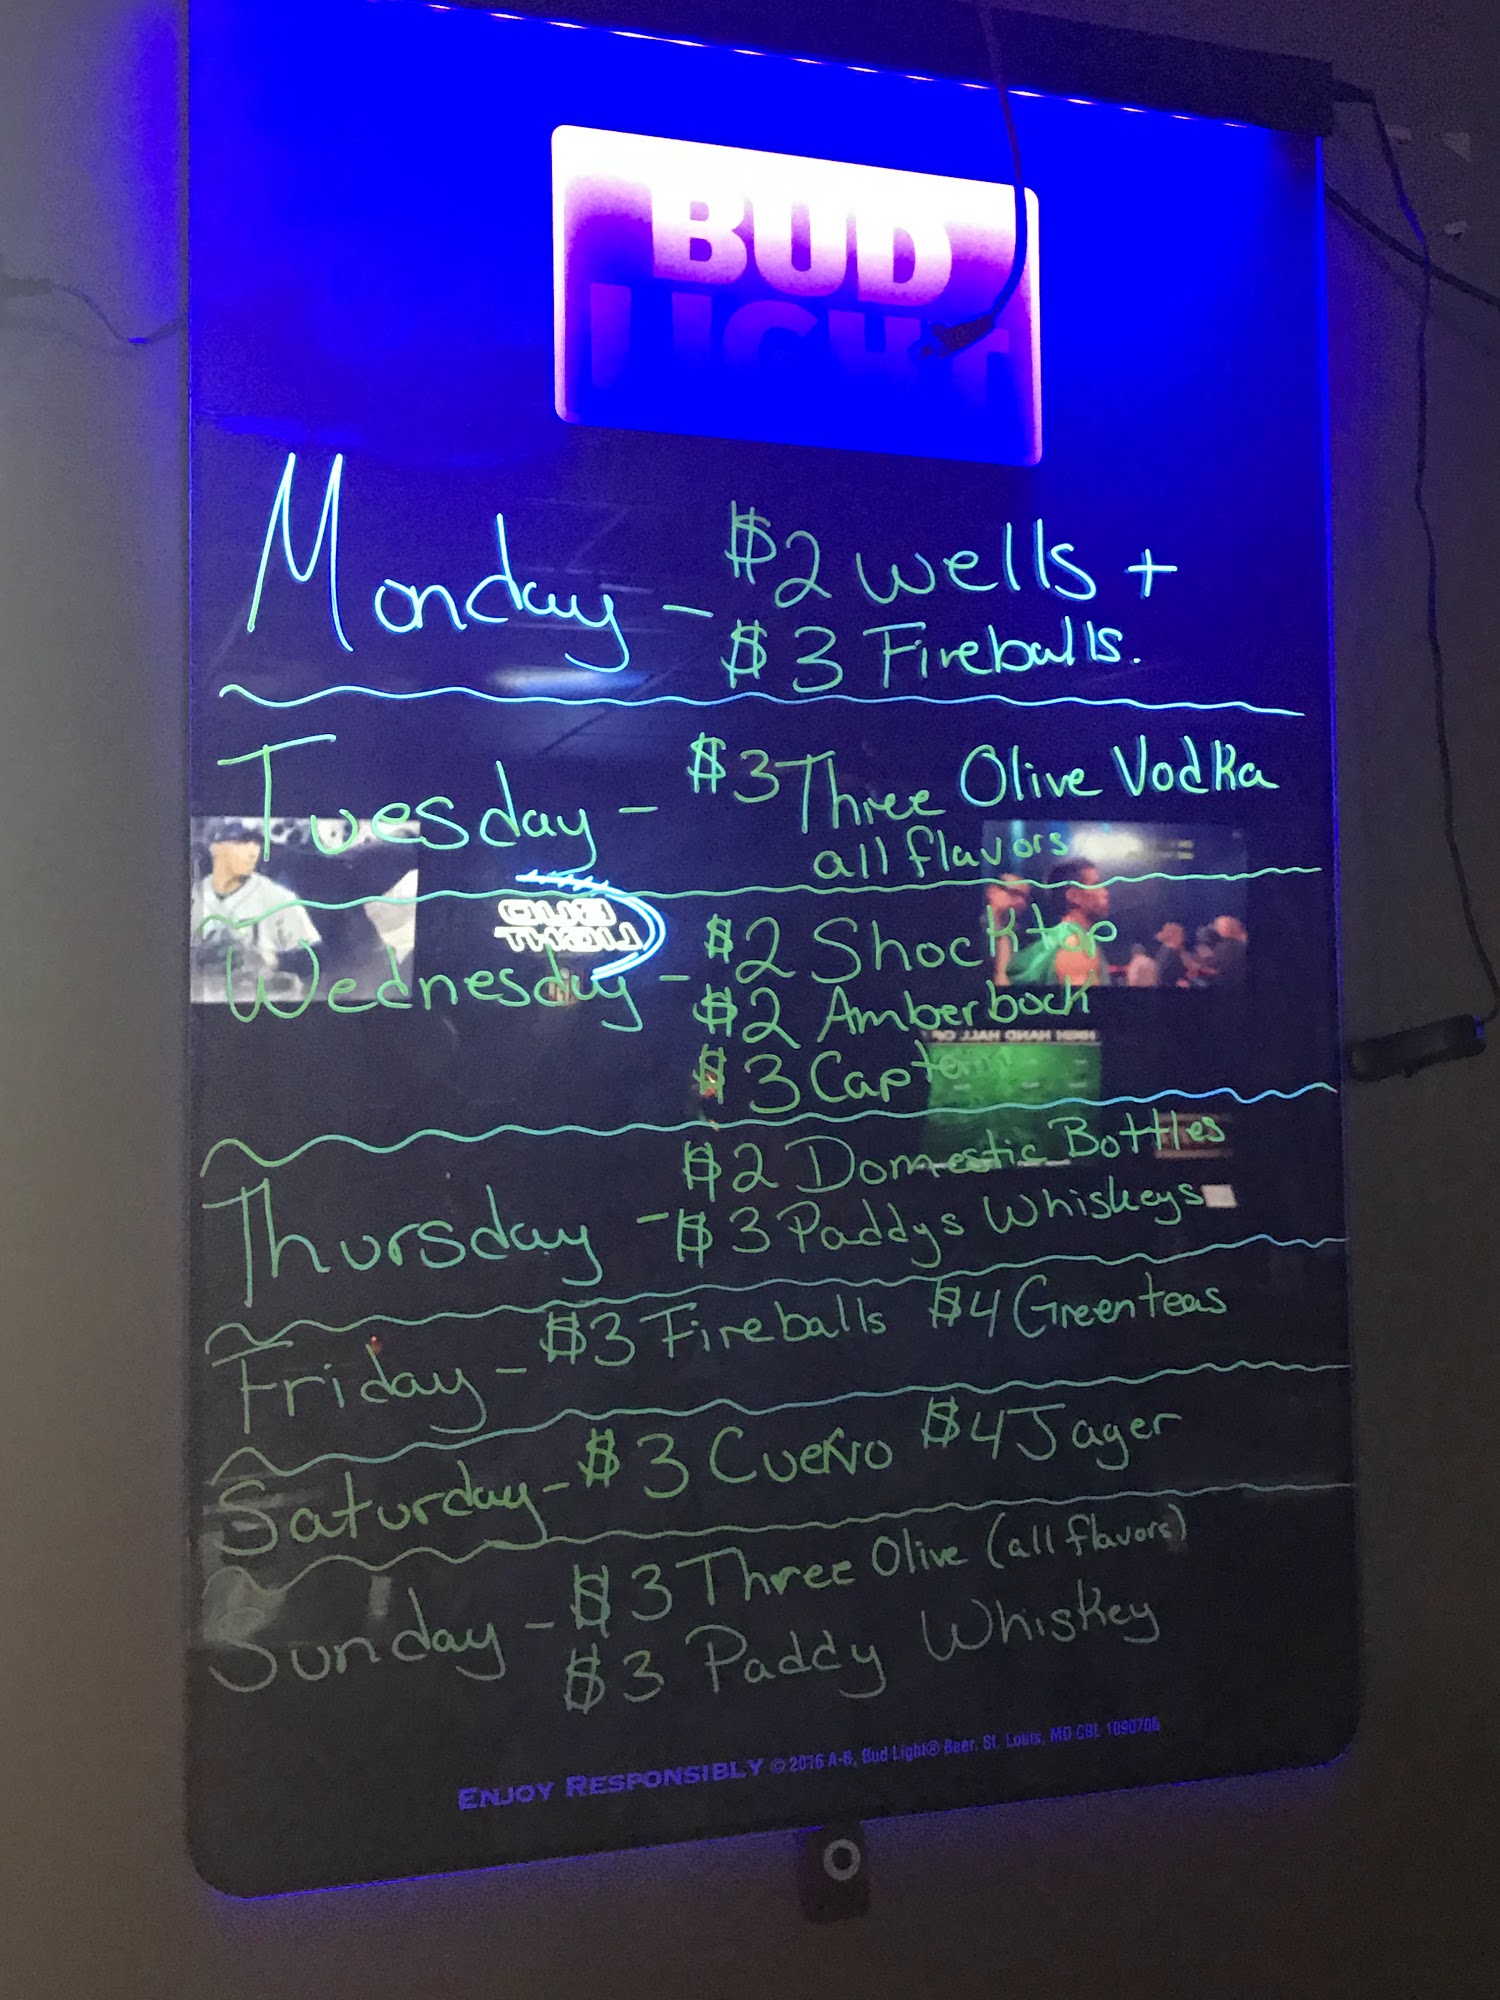 BUD
LIGHT
Monday - $2 wells +
$3 Fireballs.
Tuesday - $3 Three Olive Vodka
all flavors
Wednesday - $2 Shocktop
$2 Amberbock
$3 Captain
Thursday - $2 Domestic Bottles
$3 Paddys Whiskeys
Friday - $3 Fireballs $4 Greenteas
Saturday - $3 Cuervo $4 Jager
Sunday - $3 Three Olive (all flavors)
$3 Paddy Whiskey
ENJOY RESPONSIBLY © 2016 A-B, Bud Light® Beer, St. Louis, MO CBL 1090706
BUD
LIGHT